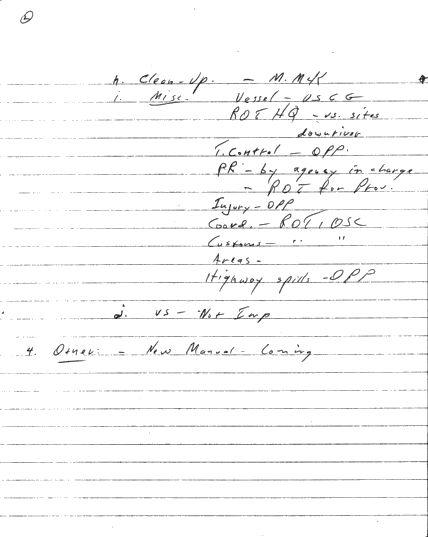 h. Clean-up. - M. McK
i. Misc. Vessel - USCG
ROT HQ - vs. sites
downriver
T. Control - OPP.
PR - by agency in charge
- ROT for Prov.
Injury - OPP
Coord. - ROT, OSC
Customs - " "
Areas -
Highway spills - OPP
j. US - Not Imp
4. Other: - New Manual - Coming